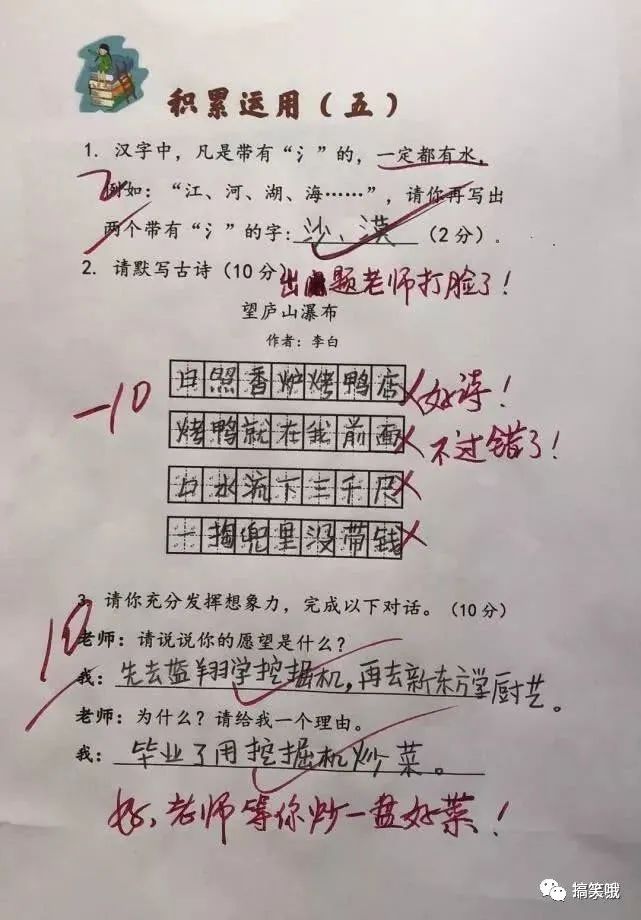 积累运用（五）
1. 汉字中，凡是带有“氵”的，一定都有水，
例如：“江、河、湖、海……”，请你再写出
两个带有“氵”的字：沙、漠（2分）。
2
2. 请默写古诗（10分）
出题老师打脸了！
望庐山瀑布
作者：李白
日照香炉烤鸭店
好诗！
-10
烤鸭就在我前面
不过错了！
口水流下三千尺
一掏兜里没带钱
3. 请你充分发挥想象力，完成以下对话。（10分）
10
老师：请说说你的愿望是什么？
我：先去蓝翔学挖掘机，再去新东方学厨艺。
老师：为什么？请给我一个理由。
我：毕业了用挖掘机炒菜。
好，老师等你炒一盘好菜！
搞笑哦